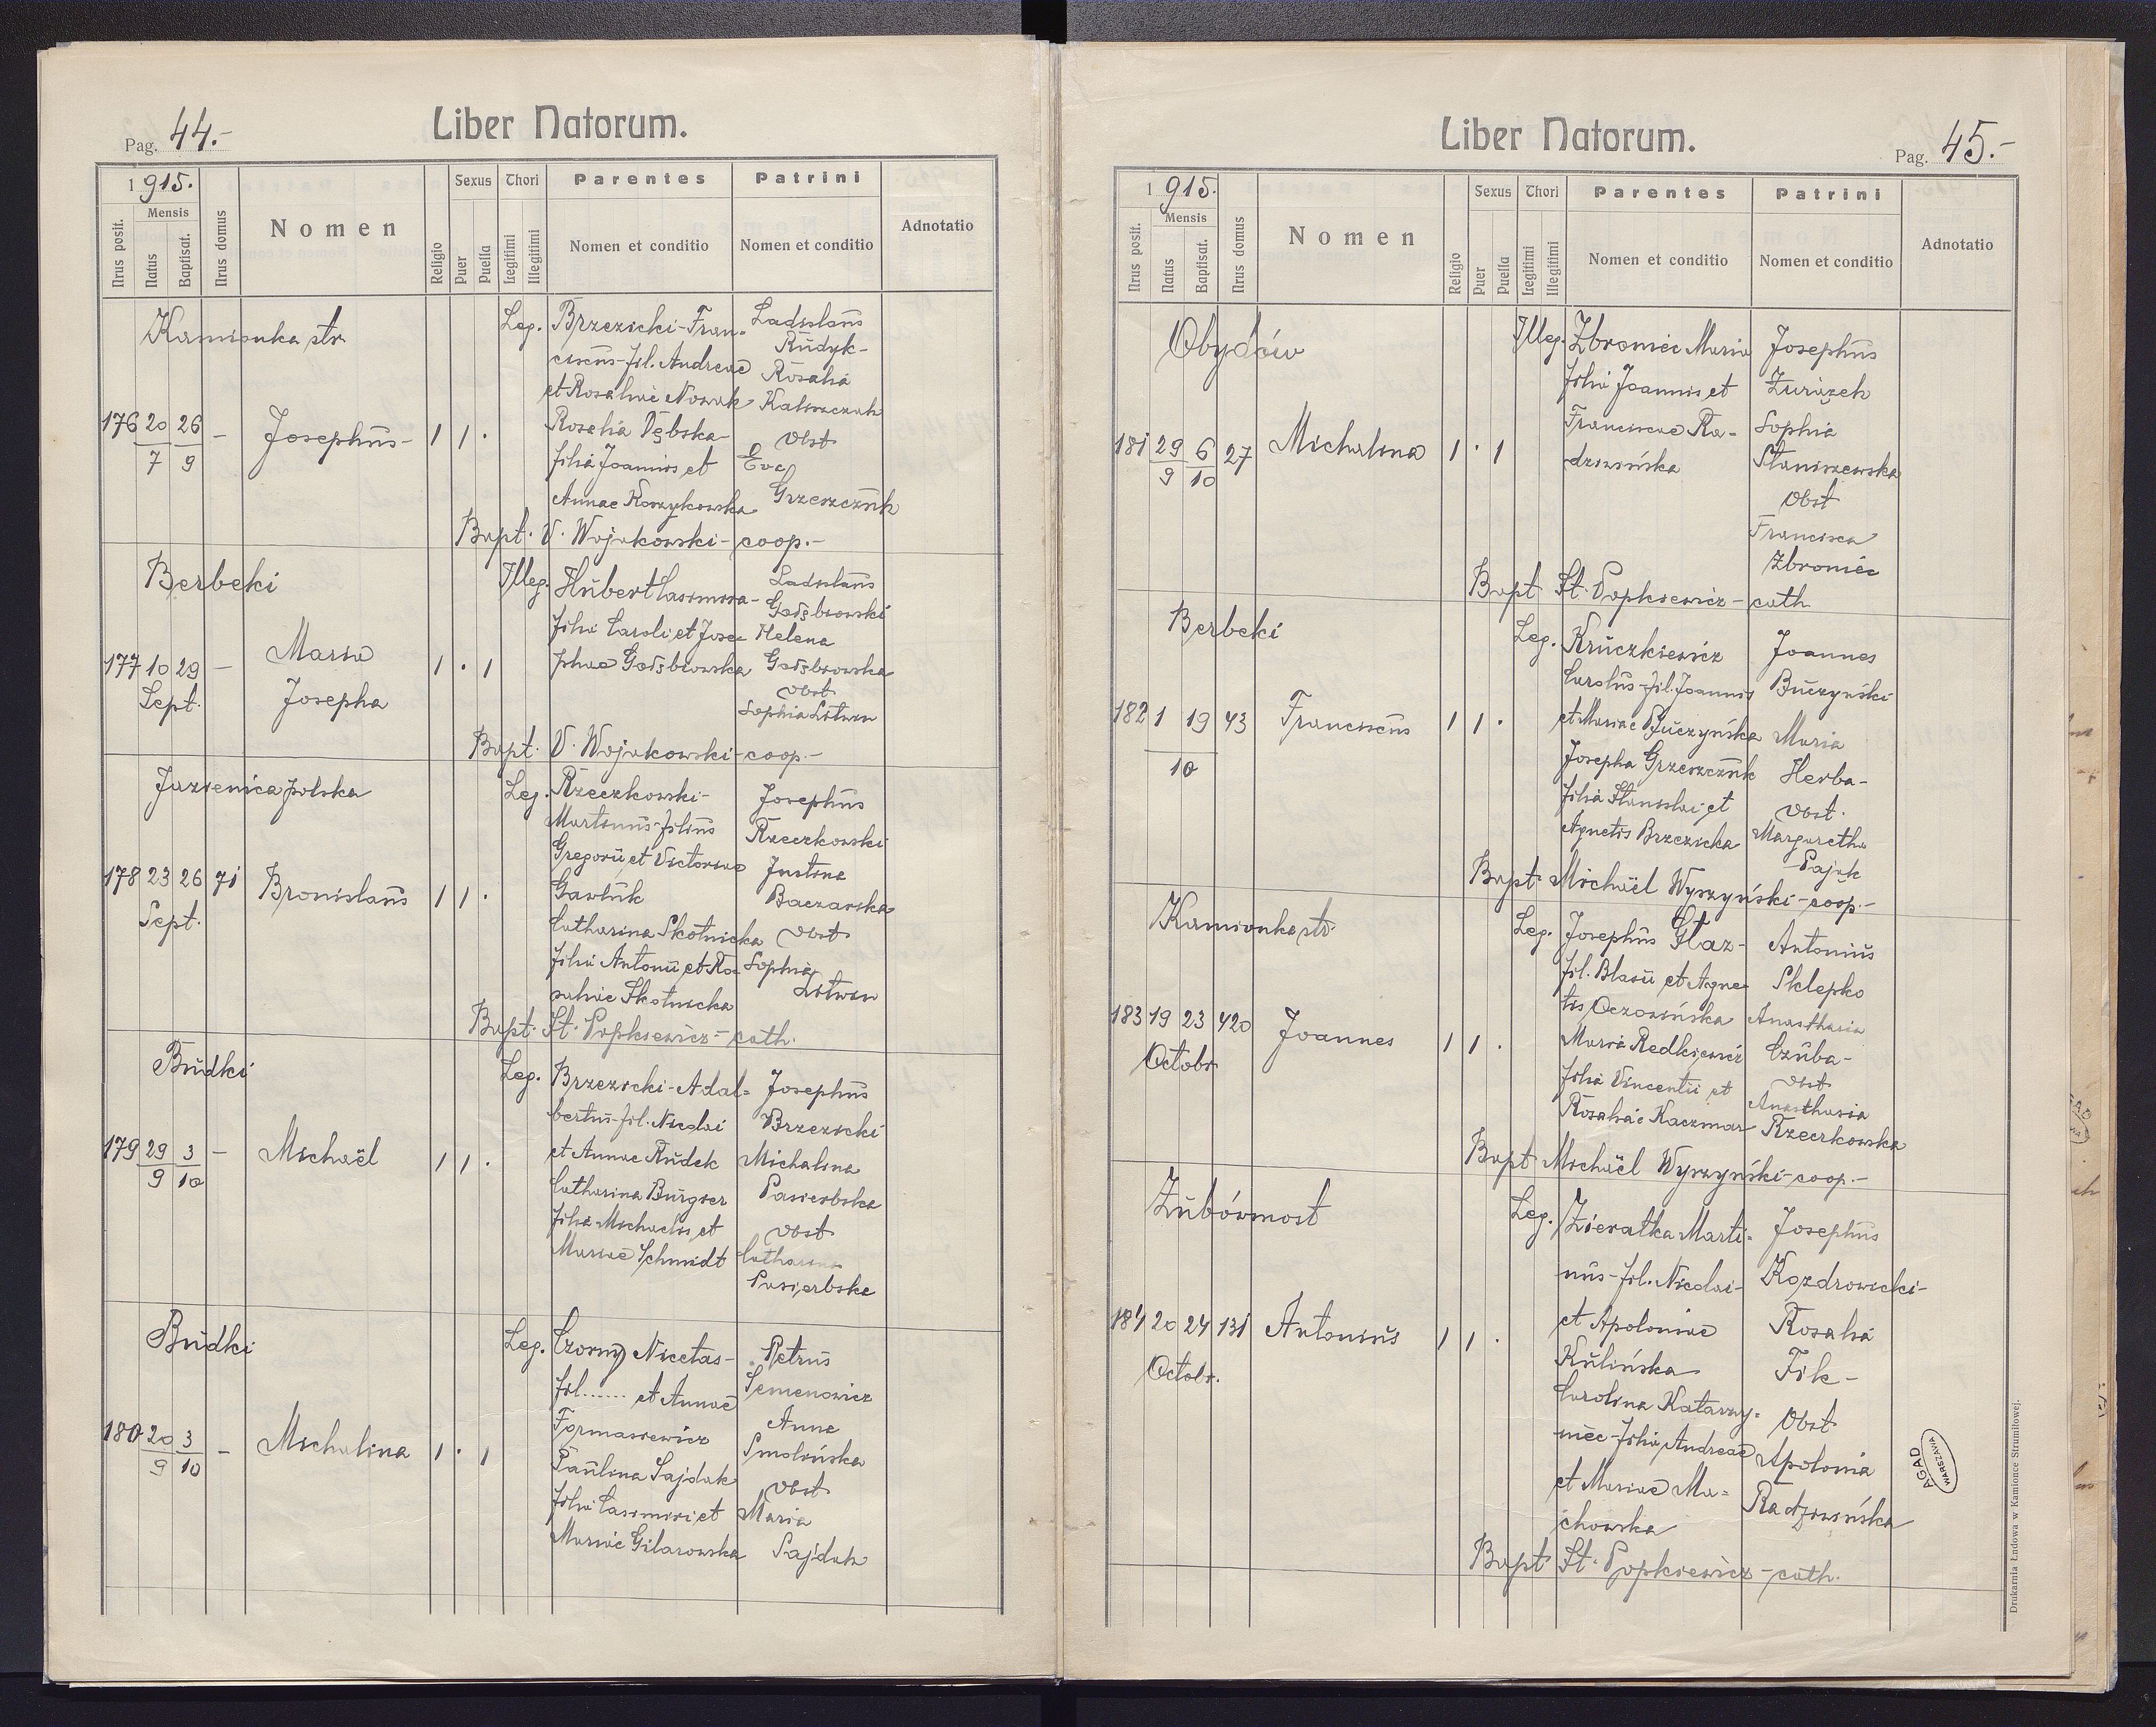 Pag. 44.-
Liber Natorum.
1915.
Nrus posit.
Mensis
Natus
Baptisat.
Nrus domus
Nomen
Religio
Sexus
Puer
Puella
Thori
Legitimi
Illegitimi
Parentes
Nomen et conditio
Patrini
Nomen et conditio
Adnotatio
Kamionka str.
176 20/7 26/9 - Josephus- 1 1 .
Leg. Brzezicki-Fran-
ciscus-fil. Andreae
et Rosaliae Nowak
Rosalia Dębska
filia Joannis et
Annae Korzykowska
Ladislaus
Rudyk-
Rosalia
Kaliszczuk
Obst
Eva
Grzeszczuk
Bapt. V. Wojakowski-coop.-
Berbeki
177 10 29 Sept. - Maria
Josepha 1 . 1
Illeg. Hubert Casimira-
filia Caroli et Jose-
phae Gołębiowska
Ladislaus
Gołębiowski
Helena
Gołębiowska
obst
Sophia Litwin
Bapt. V. Wojakowski-coop.-
Jazienica polska
178 23 26 Sept. 71 Bronislaus 1 1 .
Leg. Rzeczkowski-
Martinus-filius
Gregorii et Victoriae
Gawluk
Catharina Skotnicka
filia Antonii et Ro-
saliae Skotnicka
Josephus
Rzeczkowski
Justina
Baczarska
obst
Sophia
Litwin
Bapt. St. Popkiewicz-cath.
Budki
179 29/9 3/10 - Michaël 1 1 .
Leg. Brzezicki-Adal-
bertus-fil. Nicolai
et Annae Rudek
Catharina Burgier
filia Michaelis et
Mariae Schmidt
Josephus
Brzezicki
Michalina
Pasierbska
obst
Catharina
Pasierbska
Budki
180 20/9 3/10 - Michalina 1 . 1
Leg. Czorny Nicetas-
fil...... et Annae
Tomasiewicz
Paulina Sajdak
filia Casimiri et
Mariae Gilarowska
Petrus
Semenowicz
Anna
Smolińska
obst
Maria
Sajdak
Liber Natorum.
Pag. 45.-
1915.
Nrus posit.
Mensis
Natus
Baptisat.
Nrus domus
Nomen
Religio
Sexus
Puer
Puella
Thori
Legitimi
Illegitimi
Parentes
Nomen et conditio
Patrini
Nomen et conditio
Adnotatio
Obydów
181 29/9 6/10 27 Michalina 1 . 1
Illeg. Zbroniec Maria
filia Joannis et
Franciscae Ra-
dziwińska
Josephus
Sophia
Staniszewska
Obst
Francisca
Zbroniec
Bapt St. Popkiewicz-cath
Berbeki
182 1 19 10 43 Franciscus 1 1 .
Leg. Kruczkiewicz
Carolus-fil. Joannis
et Mariae Buczyńska
Josepha Grzeszczuk
filia Stanislai et
Agnetis Brzezicka
Joannes
Buczyński
Maria
Herba-
obst.
Margaretha
Pająk
Bapt Michaël Wyszyński-coop.-
Kamionka str.
183 19 23 Octobr. 420 Joannes 1 1 .
Leg. Josephus Głaz-
fil. Blasii et Agne-
tis Oczowińska
Maria Redkiewicz
filia Vincentii et
Rosaliae Kaczmar
Antonius
Sklepko
Anasthasia
Czuba-
obst
Anasthasia
Rzeczkowska
Bapt Michaël Wyszyński-coop.-
Zubówmost
184 20 24 Octobr. 131 Antonius 1 1 .
Leg. Zieratka Marti-
nus-fil. Nicolai-
et Apoloniae
Kulińska
Carolina Katarzy-
niec-filia Andreae
et Mariae Ma-
chowska
Josephus
Kozdrowicki-
Rosalia
Filc-
Obst
Apolonia
Radziwińska
Bapt St. Popkiewicz-cath.
AGAD
WARSZAWA
Drukarnia Ludowa w Kamionce Strumiłowej.